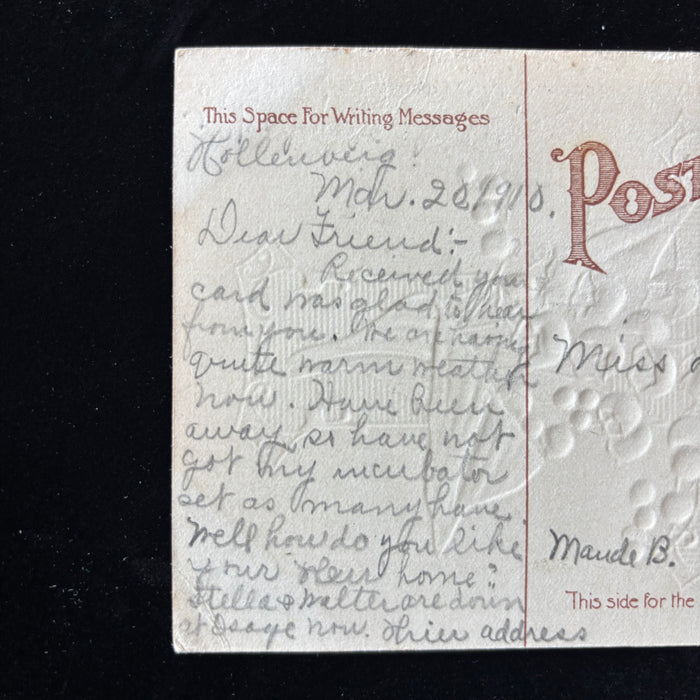 This Space For Writing Messages
Mar. 20, 1910.
Dear Friend:-
Received your
card was glad to hear
from you. We are having
quite warm weather
now. Have been
away, so have not
got my incubator
set as many have.
Well how do you like
your new home?
Stella & Walter are down
at Osage now. Thier address
POST
Miss
Maude B.
This side for the